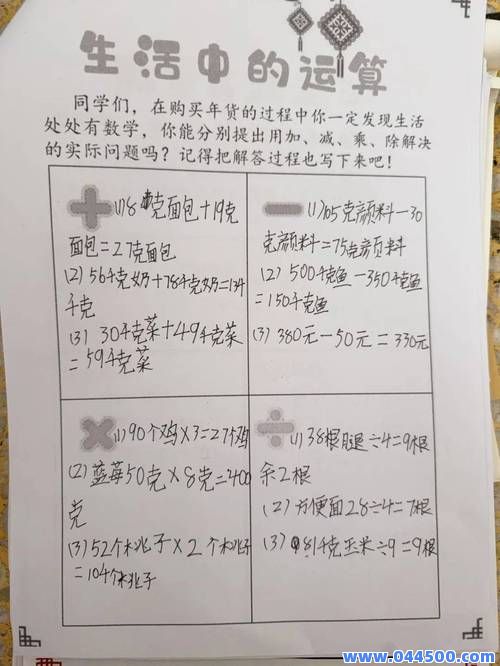 生活中的运算
同学们，在购买年货的过程中你一定发现生活
处处有数学，你能分别提出用加、减、乘、除解决
的实际问题吗？记得把解答过程也写下来吧！
(1)8克面包+19克
面包=27克面包
(2)56千克奶+78千克奶=134
千克
(3) 30千克菜+49千克菜
=59千克菜
(1)105克颜料-30
克颜料=75克颜料
(2) 500千克鱼-350千克鱼
=150千克鱼
(3) 380元-50元=330元
(1)90个鸡×3=27个鸡
(2)蓝莓50克×8克=400
克
(3)52个桃子×2个桃子
=104个桃子
(1)38根腿÷4=9根
余2根
(2)方便面28÷4=7根
(3)81千克玉米÷9=9根
www.044500.com